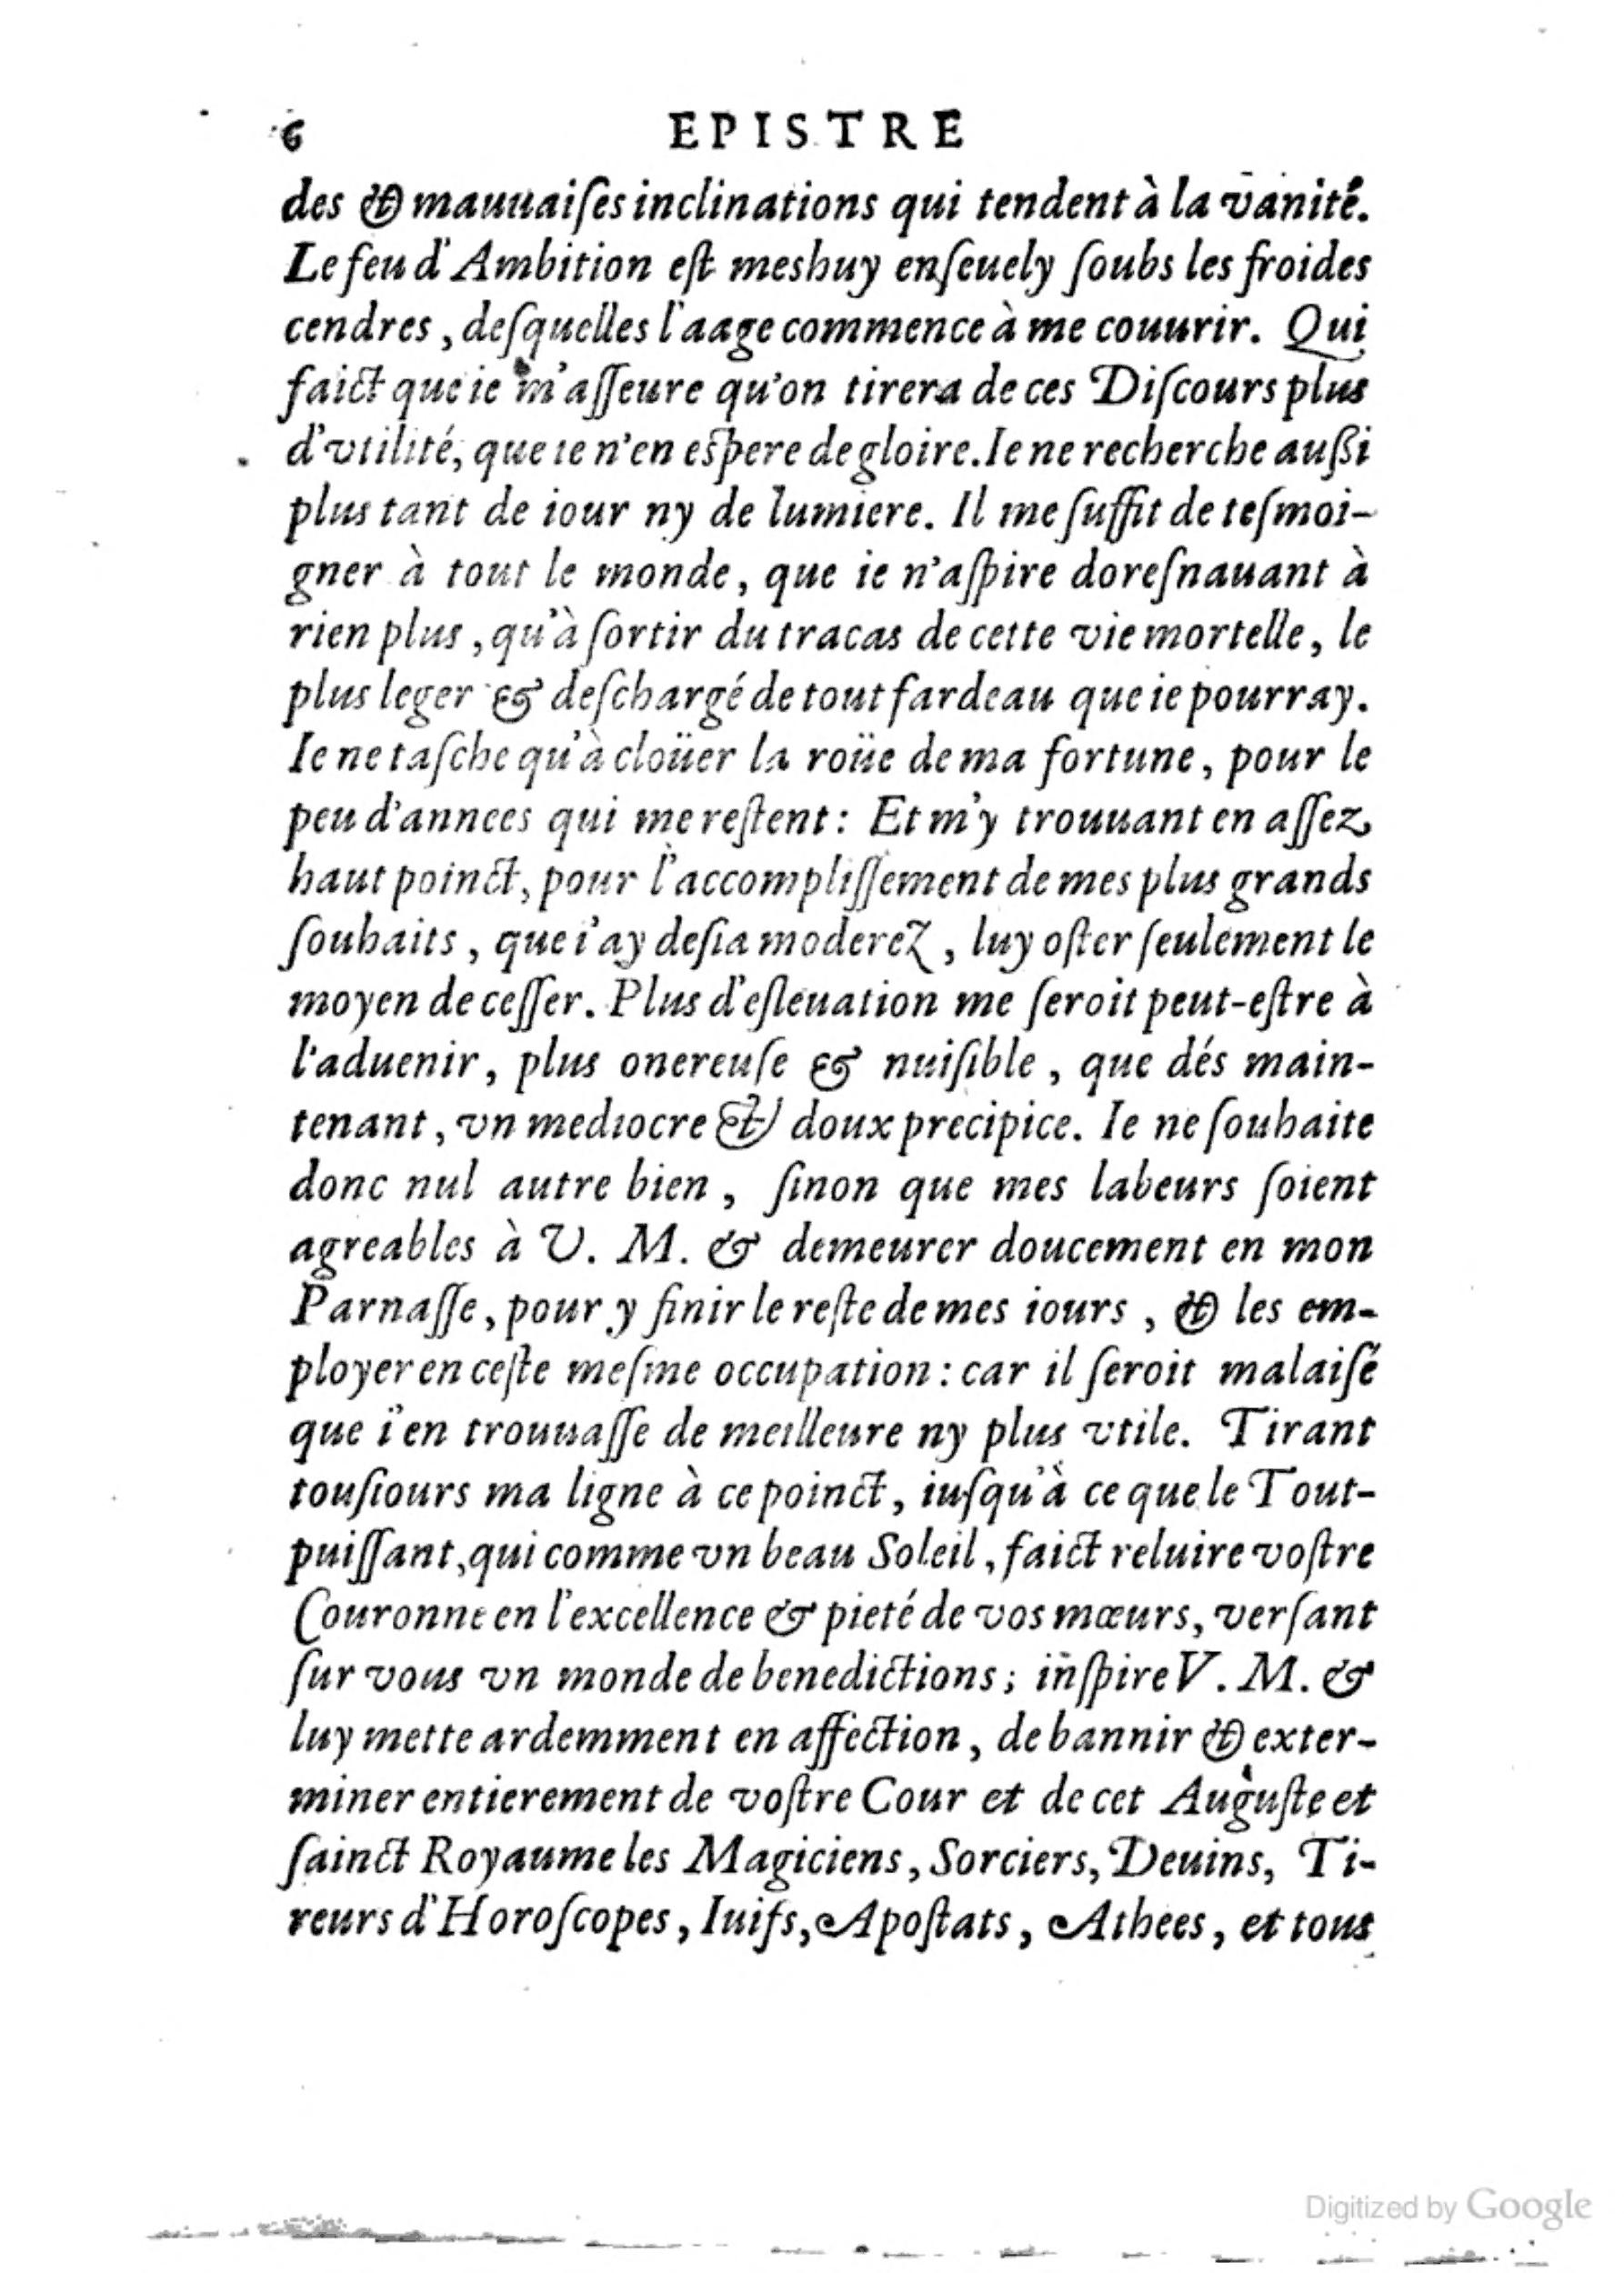 6 EPISTRE
des & mauuaiſes inclinations qui tendent à la vanité.
Le feu d'Ambition eſt meshuy enſeuely ſoubs les froides
cendres, deſquelles l'aage commence à me couurir. Qui
faict que ie m'aſſeure qu'on tirera de ces Diſcours plus
d'vtilité, que ie n'en eſpere de gloire. Ie ne recherche auſſi
plus tant de iour ny de lumiere. Il me ſuffit de teſmoi-
gner à tout le monde, que ie n'aſpire doreſnauant à
rien plus, qu'à ſortir du tracas de cette vie mortelle, le
plus leger & deſchargé de tout fardeau que ie pourray.
Ie ne taſche qu'à cloüer la roüe de ma fortune, pour le
peu d'annees qui me reſtent: Et m'y trouuant en aſſez
haut poinct, pour l'accompliſſement de mes plus grands
ſouhaits, que i'ay deſia moderez, luy oſter ſeulement le
moyen de ceſſer. Plus d'eſleuation me ſeroit peut-eſtre à
l'aduenir, plus onereuſe & nuiſible, que dés main-
tenant, vn mediocre & doux precipice. Ie ne ſouhaite
donc nul autre bien, ſinon que mes labeurs ſoient
agreables à V. M. & demeurer doucement en mon
Parnaſſe, pour y finir le reſte de mes iours, & les em-
ployer en ceſte meſme occupation: car il ſeroit malaiſé
que i'en trouuaſſe de meilleure ny plus vtile. Tirant
touſiours ma ligne à ce poinct, iuſqu'à ce que le Tout-
puiſſant, qui comme vn beau Soleil, faict reluire voſtre
Couronne en l'excellence & pieté de vos mœurs, verſant
ſur vous vn monde de benedictions; inſpire V. M. &
luy mette ardemment en affection, de bannir & exter-
miner entierement de voſtre Cour et de cet Auguſte et
ſainct Royaume les Magiciens, Sorciers, Deuins, Ti-
reurs d'Horoſcopes, Iuifs, Apoſtats, Athees, et tous
Digitized by Google